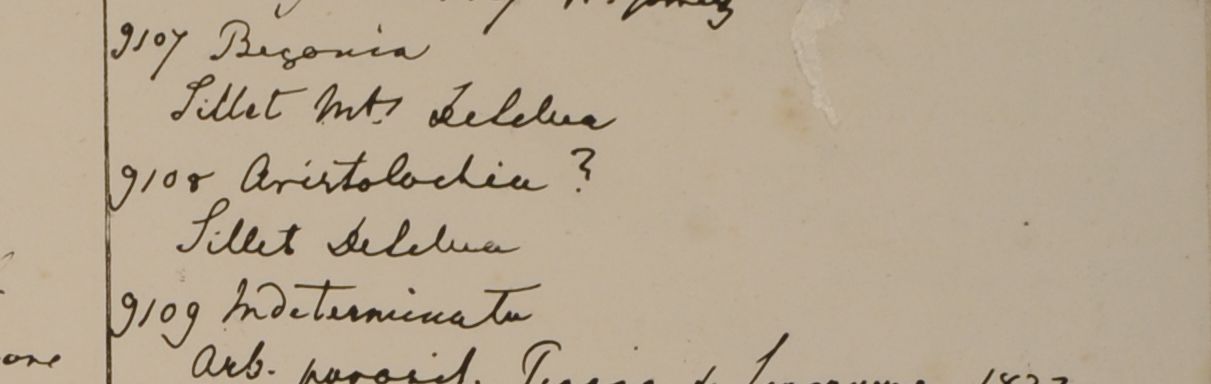 9107 Begonia
Sillet Mts DeSilva
9108 Aristolochia ?
Sillet DeSilva
9109 Indeterminata
Arb. parasit.